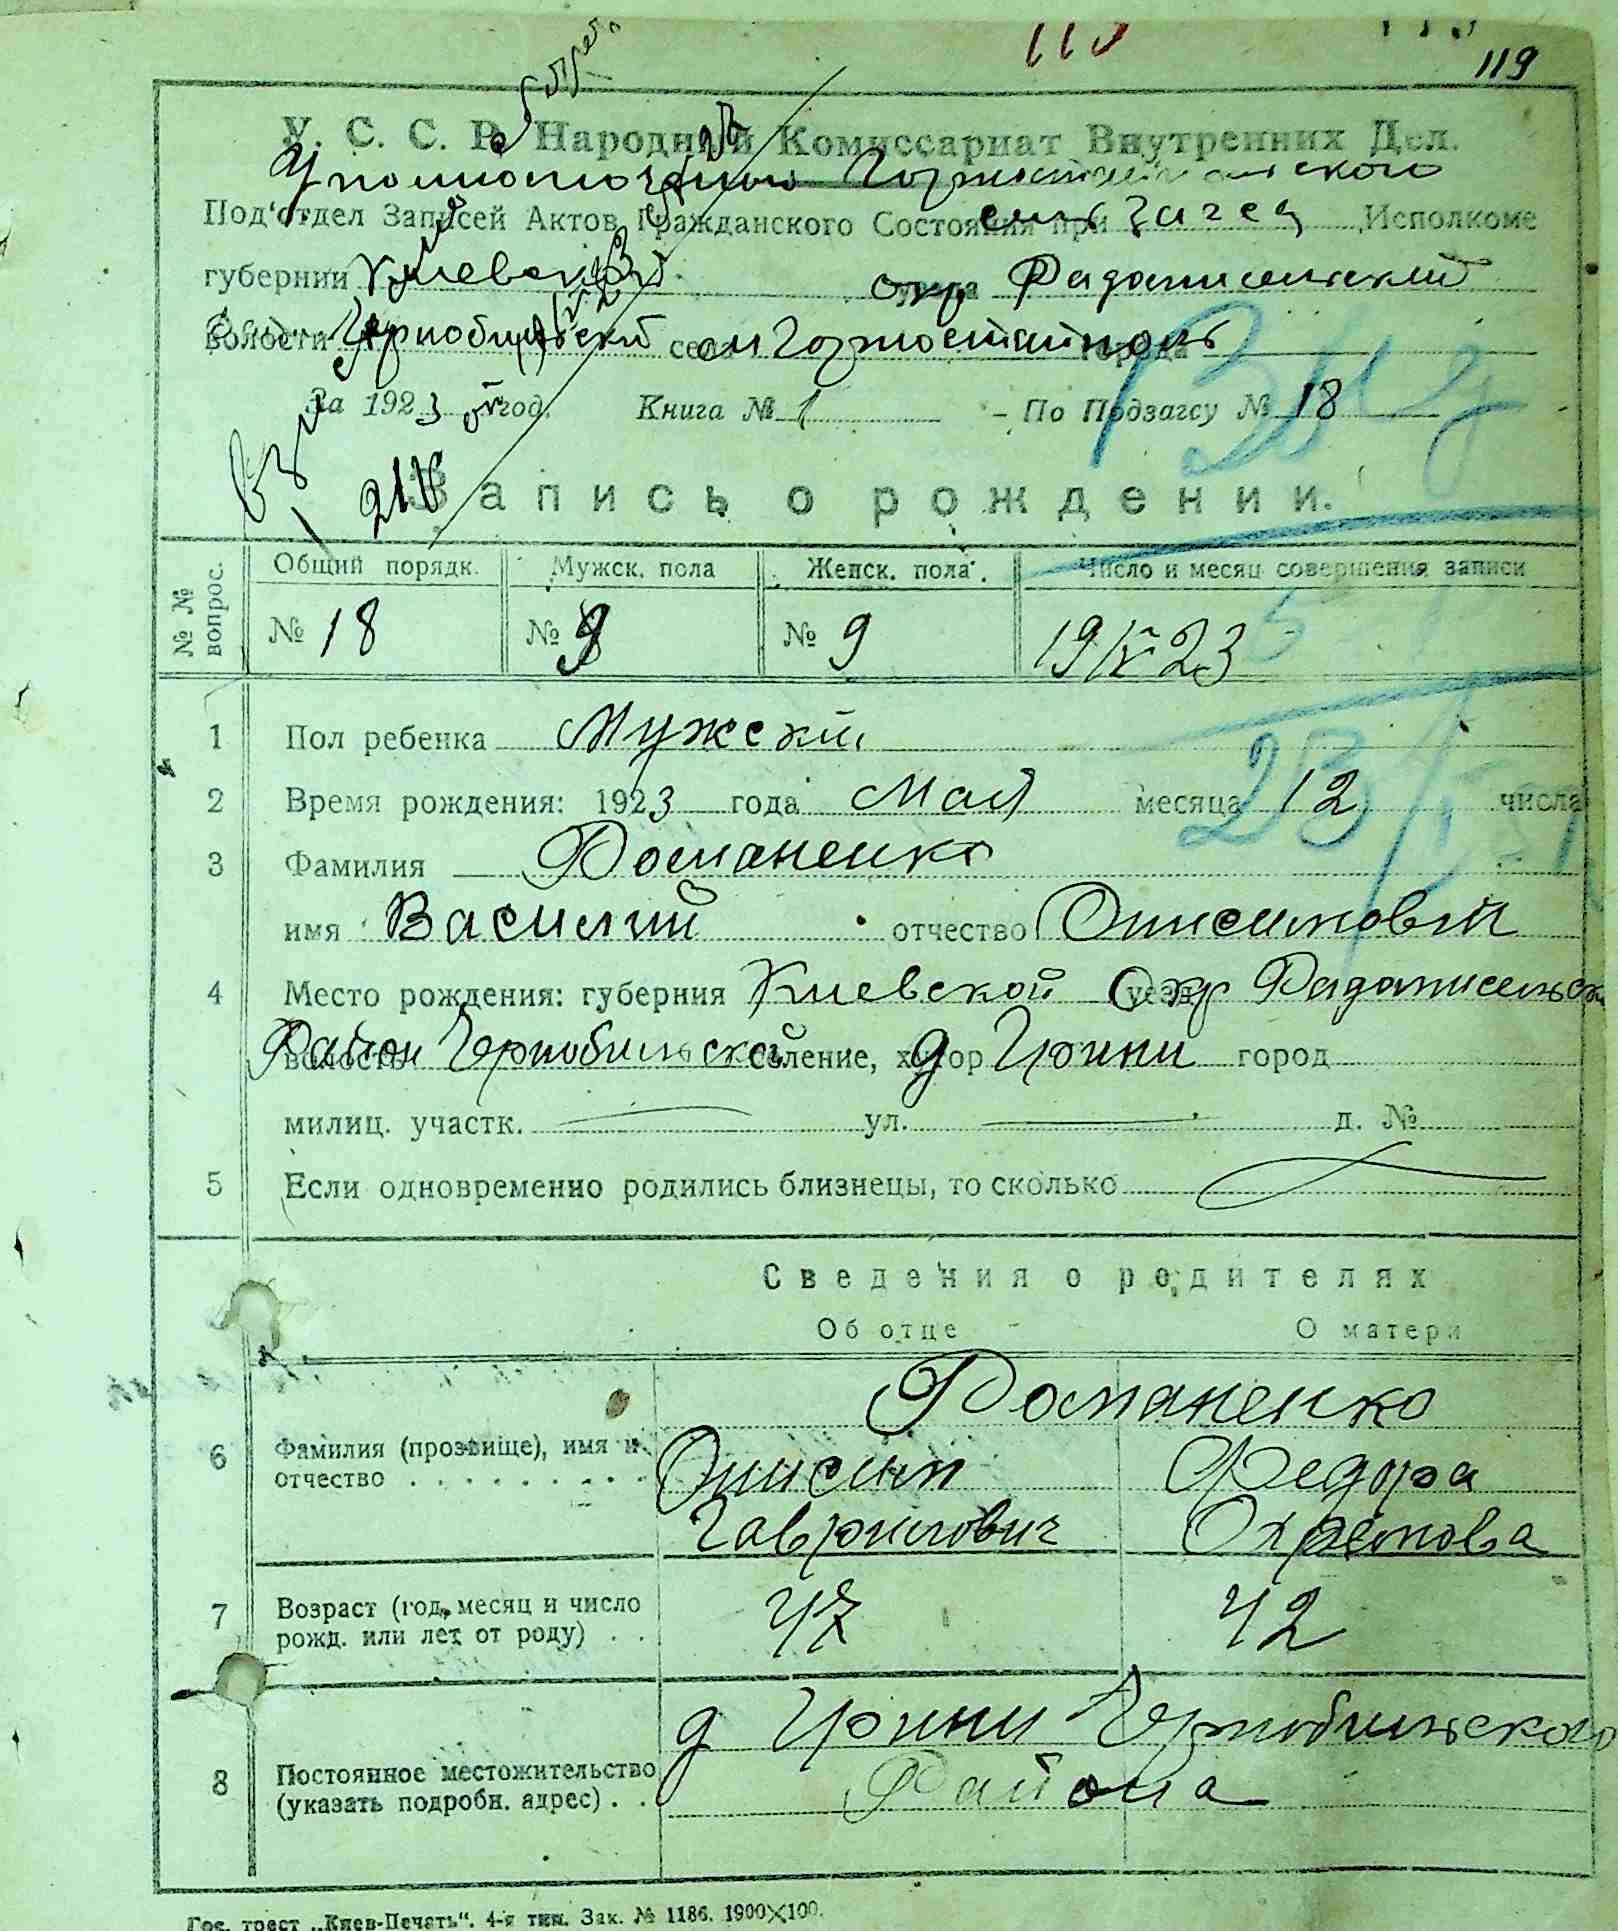 119
У. С. С. Р. Народный Комиссариат Внутренних Дел.
Под'отдел Записей Актов Гражданского Состояния при Исполкоме
губернии Киевской окр Радомисельский
волости Чернобильский село м Горностайполь города
За 1923 год. Книга № 1 По Подзагсу № 18
Запись о рождении.
№ № вопрос. Общий порядк. Мужск. пола Женск. пола. Число и месяц совершения записи
№ 18 № 9 № 9 19/V 23
1 Пол ребенка Мужский
2 Время рождения: 1923 года Мая месяца 12 числа
3 Фамилия Романенко
имя Василий отчество Онисимович
4 Место рождения: губерния Киевской Окр Радомисельск
Район Чернобильской селение, хутор д Грини город
милиц. участк. ул. д. №
5 Если одновременно родились близнецы, то сколько
Сведения о родителях
Об отце О матери
Романенко
6 Фамилия (прозвище), имя и отчество Онисим Федора
Гаврилович Охремова
7 Возраст (год, месяц и число рожд. или лет от роду) 47 42
д Грини Чернобильского
8 Постоянное местожительство (указать подробн. адрес) Района
Гос. трест „Киев-Печать“. 4-я тип. Зак. № 1186. 1900×100.